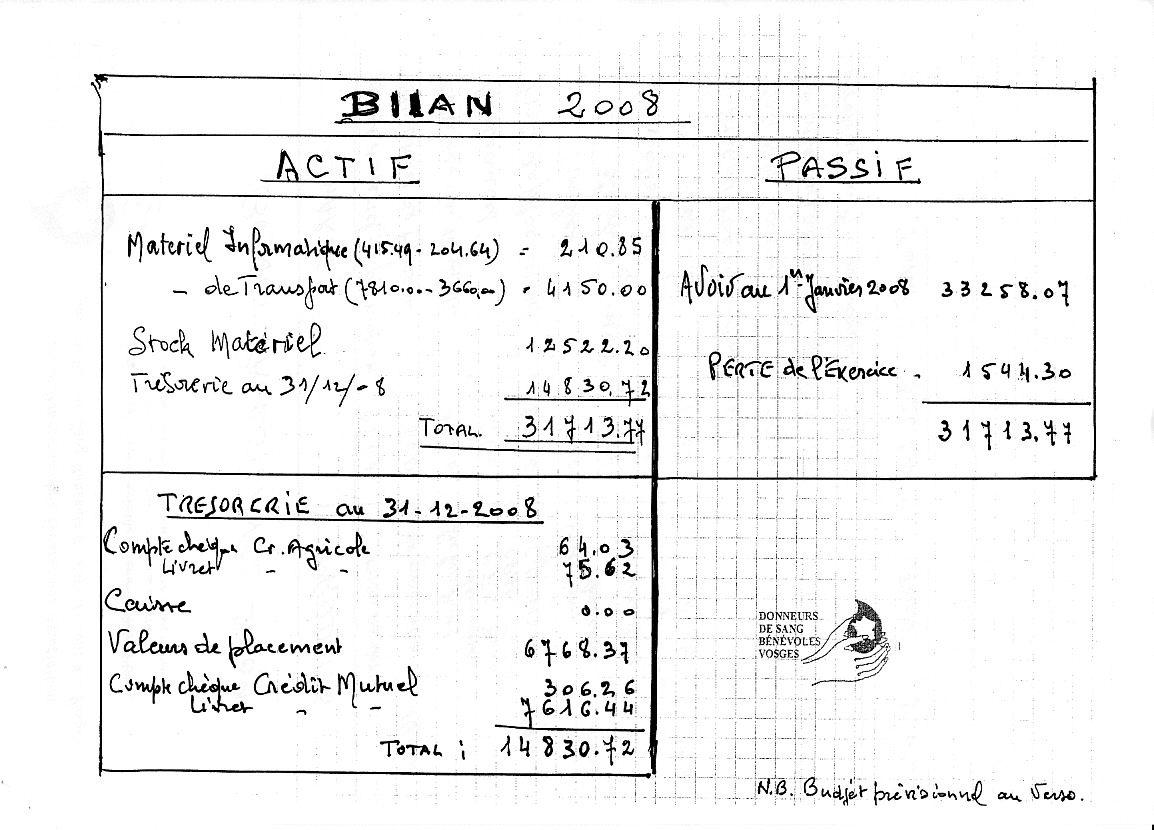 BILAN 2008
ACTIF
PASSIF
Materiel Informatique (415.49 - 204.64) = 210.85
- de Transport (7810.00 - 3660,00) = 4150.00
Stock Matériel 12522.20
Trésorerie au 31/12/-8 14830.72
TOTAL. 31713.77
AVoir au 1er Janvier 2008 33258.07
PERTE de l'Exercice - 1544.30
31713.77
TRESORERIE au 31-12-2008
Compte chèque Cr. Agricole 64.03
Livret - - 75.62
Caisse 0.00
Valeurs de placement 6768.37
Compte chèque Crédit Mutuel 306.26
Livret - - 7616.44
TOTAL : 14830.72
DONNEURS
DE SANG
BÉNÉVOLES
VOSGES
N.B. Budget prévisionnel au Verso.